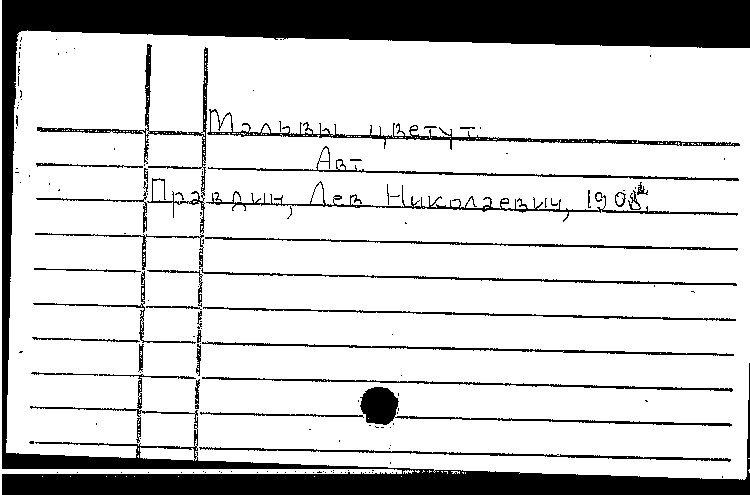 Мальвы цветут.
Авт.
Правдин, Лев Николаевич,